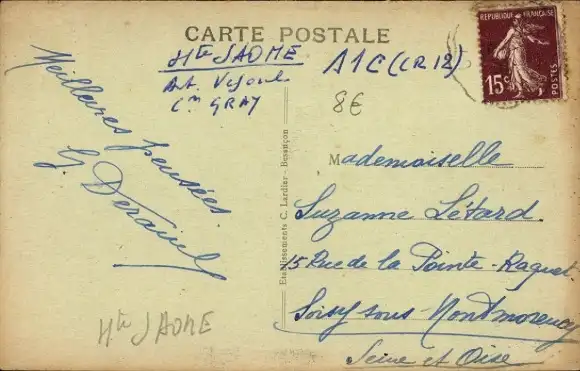 CARTE POSTALE
Hte SAONE
Art. Vesoul
Cm GRAY
A1C (CR 12)
8€
REPUBLIQUE FRANÇAISE
15c
POSTES
Meilleures pensées
G.
Etablissements C. Lardier - Besançon
Mademoiselle
Suzanne Létard.
15 Rue de la Pointe-Raquet
Soisy sous-Montmorency
Seine et Oise
Hte SAONE